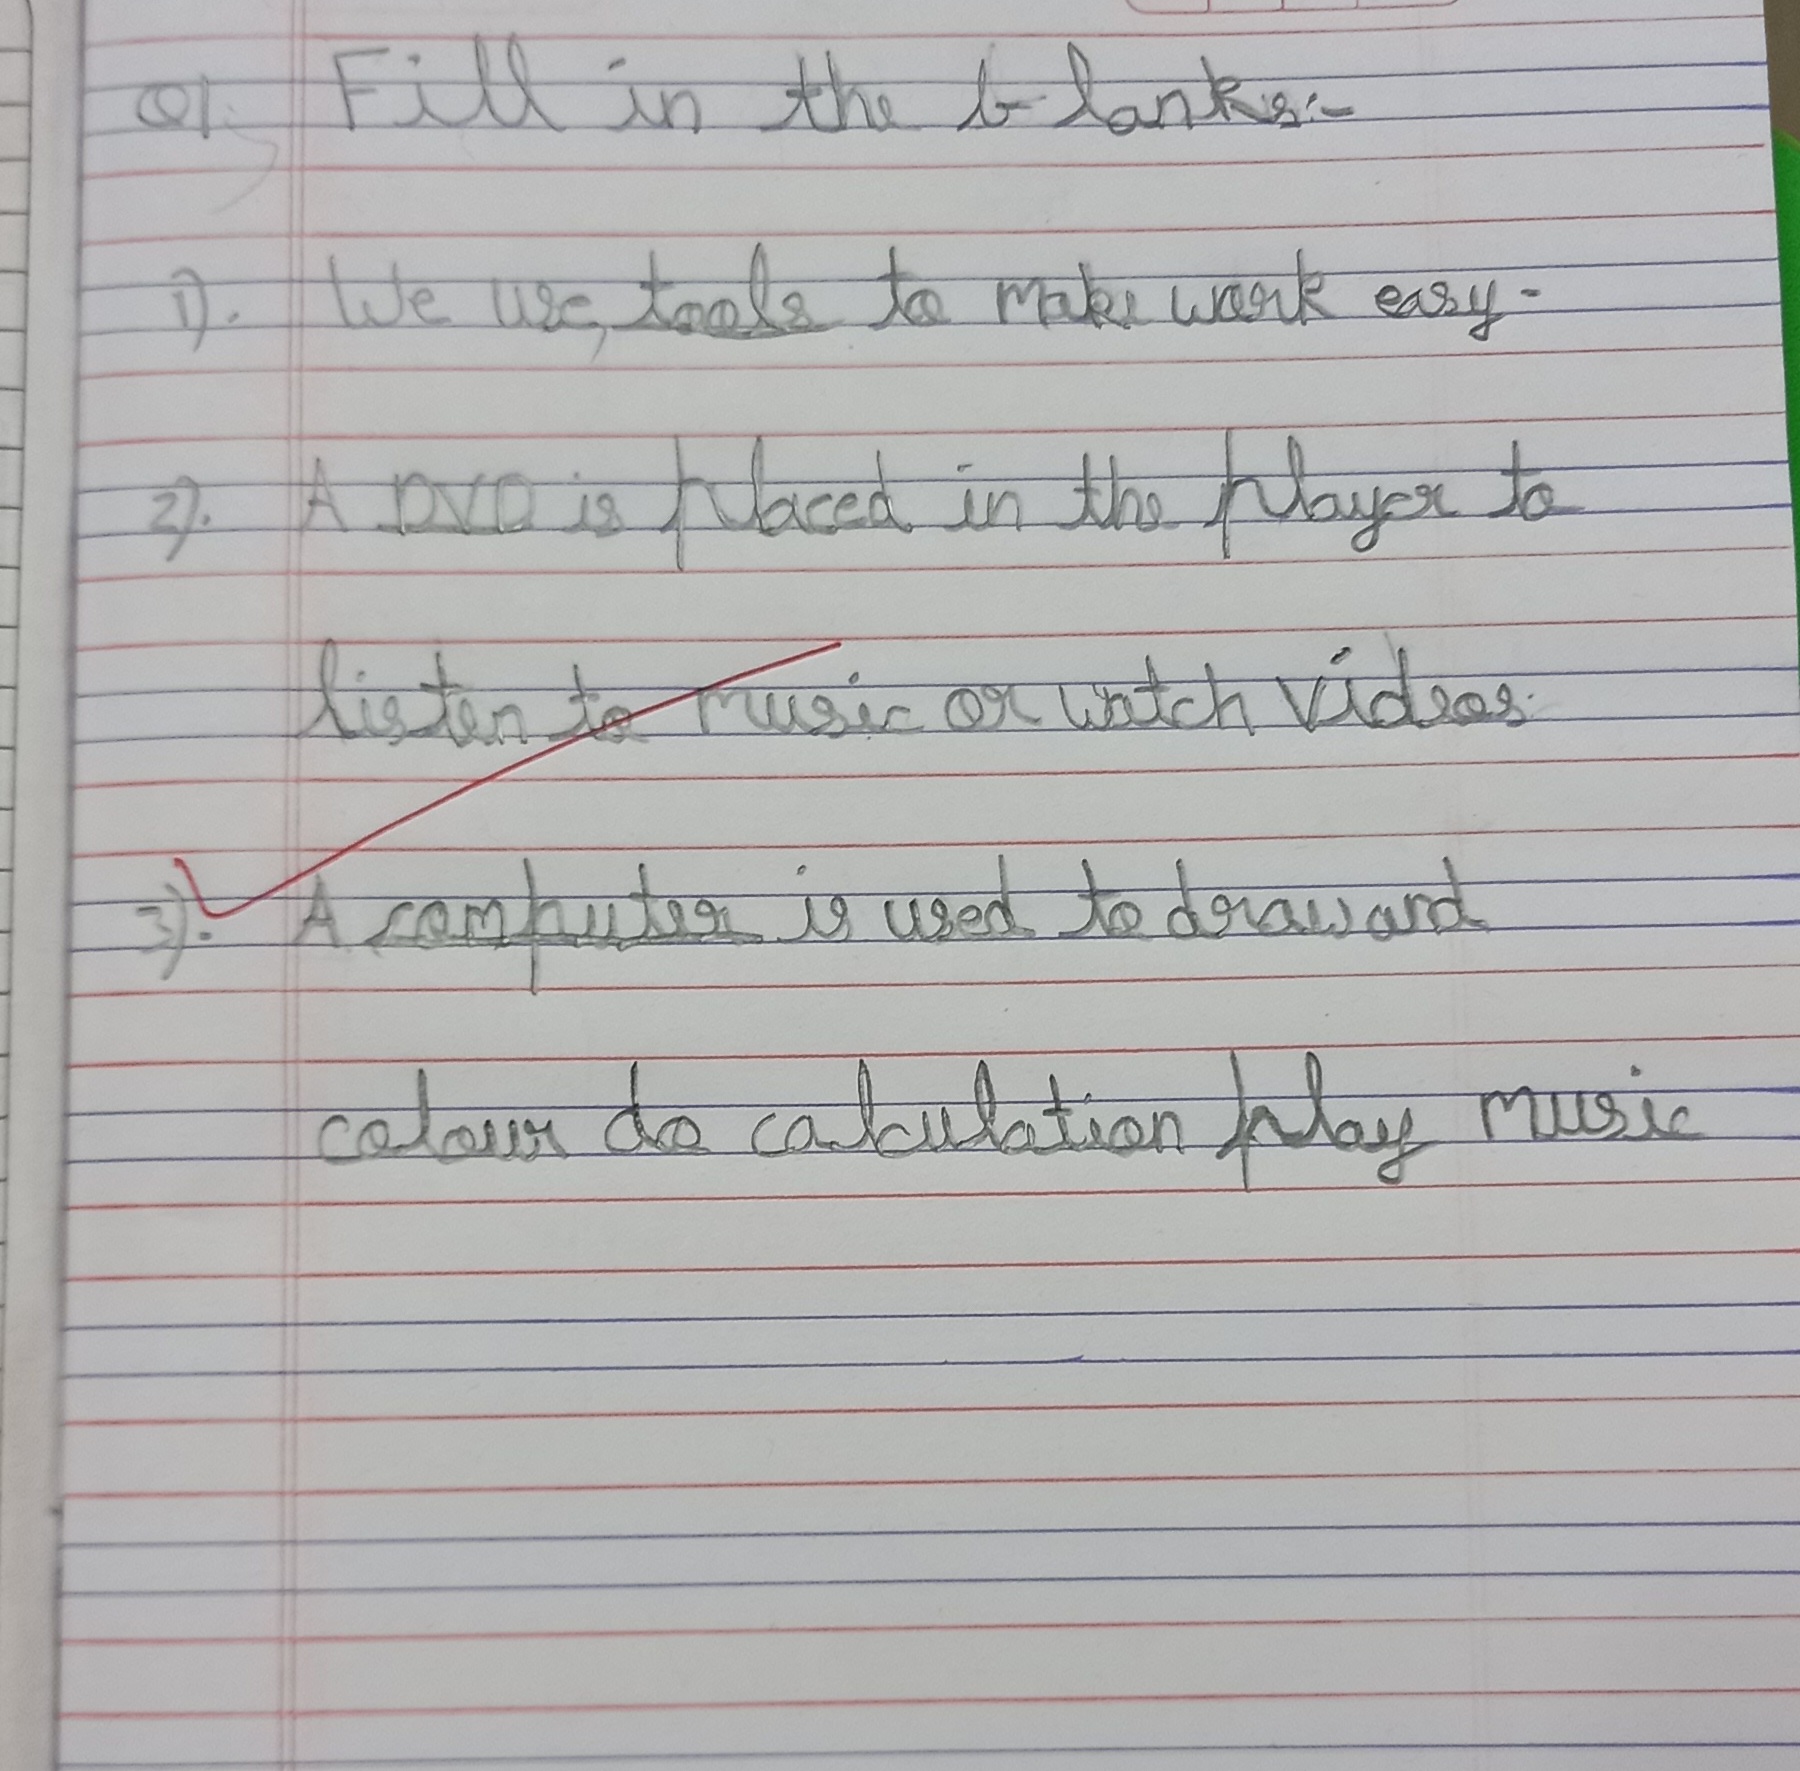 Q1. Fill in the blanks:-
1). We use, tools to make work easy.
2). A DVD is placed in the player to
listen to music or watch videos.
3). A computer is used to draw and
colour do calculation play music